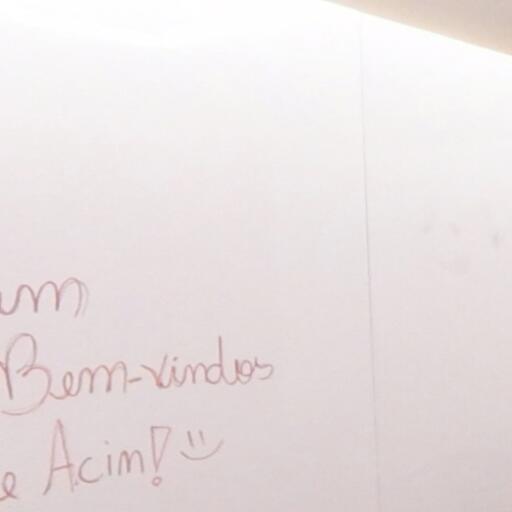 um
Bem-vindos
e Acim! :)